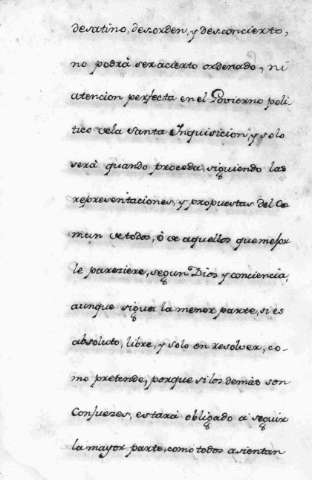 desatino, desorden, y desconcierto,
no podrà ser acierto ordenado, ni
atencion perfecta en el Govierno poli
tico dela Santa Inquisicion, y solo
serà quando proceda siguiendo las
representaciones, y propuestas del Co
mun de todos, ò de aquellos que mejor
le pareziere, segun Dios y conciencia,
aunque sigua la menor parte, si es
absoluto, libre, y solo en resolver, co-
mo pretende, porque si los demàs son
Conjuezes, estarà obligado à seguir
la mayor parte, como todos asientan